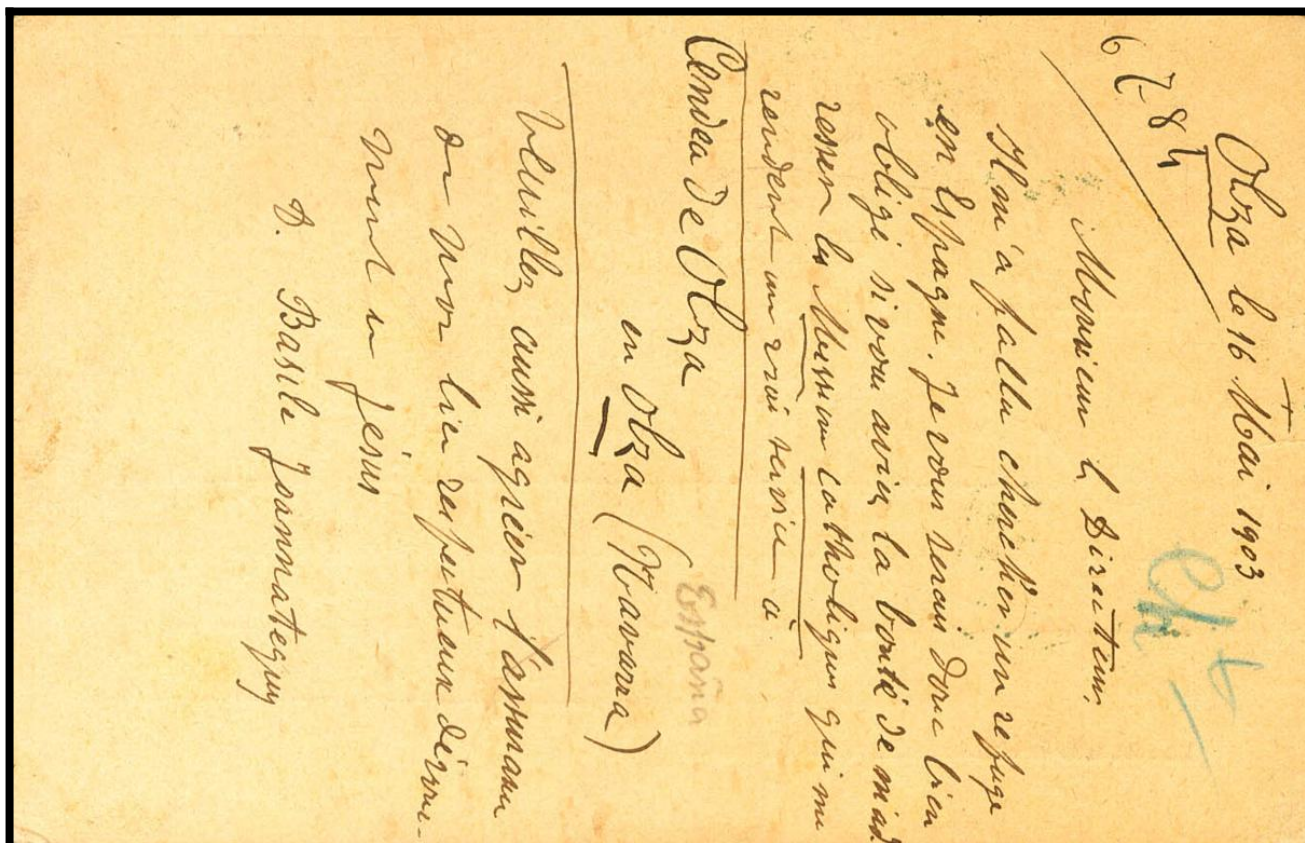 Olza le 16 Mai 1903
6 7-84
Monsieur l Directeur,
Il m'a fallu chercher un refuge
en Espagne. Je vous serais donc bien
obligé si vous aviez la bonté de m'ad
resser les Missions catholiques qui me
rendent un vrai service à
Cendea de Olza
en Olza (Navarra)
España
Veuillez aussi agréer l'assurance
de mon bien respectueux dévoue-
ment en Jésus
D. Basile Joannateguy